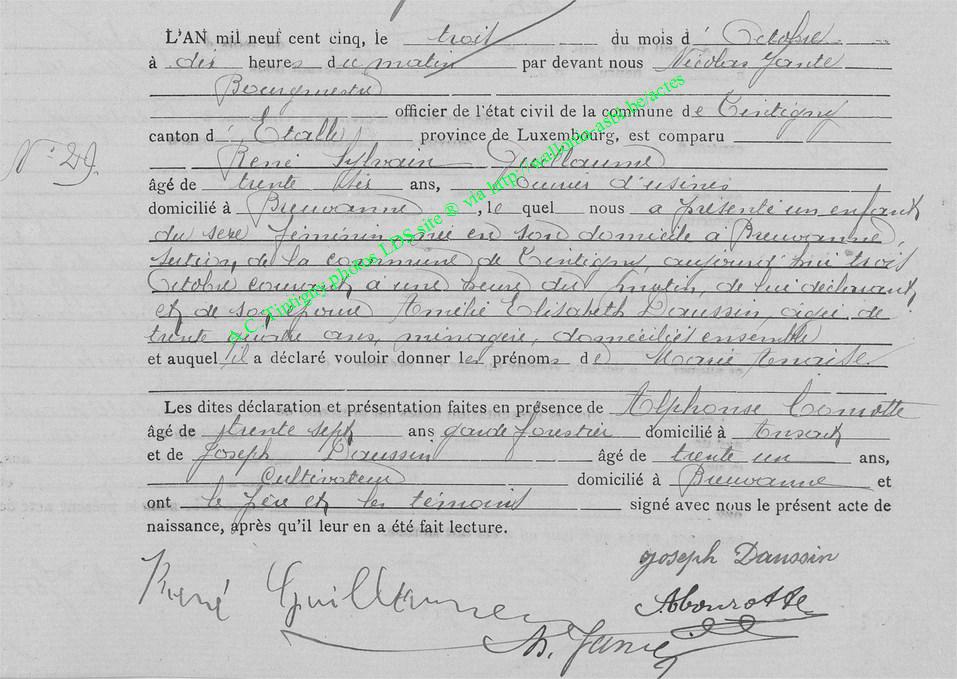 L'AN mil neuf cent cinq, le trois du mois d' Octobre
à dix heures du matin par devant nous Nicolas
Bourgmestre
officier de l'état civil de la commune de Tintigny
canton d' Etalle province de Luxembourg, est comparu
N° 29.
René Sylvain Guillaume
âgé de trente six ans, ouvrier d'usines
domicilié à Breuvanne, le quel nous a présenté un enfant
du sexe féminin, née en son domicile à Breuvanne,
section de la commune de Tintigny, aujourd'hui trois
Octobre courant à une heure du matin, de lui déclarant,
et de son épouse Amélie Elisabeth Daussin, âgée de
trente quatre ans, ménagère, domiciliés ensemble
et auquel il a déclaré vouloir donner les prénoms de Marie
Les dites déclaration et présentation faites en présence de Alphonse
âgé de trente sept ans garde forestier domicilié à Ansart
et de Joseph Daussin âgé de trente un ans,
Cultivateur domicilié à Breuvanne et
ont le père et les témoins signé avec nous le présent acte de
naissance, après qu'il leur en a été fait lecture.
Joseph Daussin
René Guillaume
A.C. Tintigny photos LDS site ® via http://wallonia-asbl.be/actes